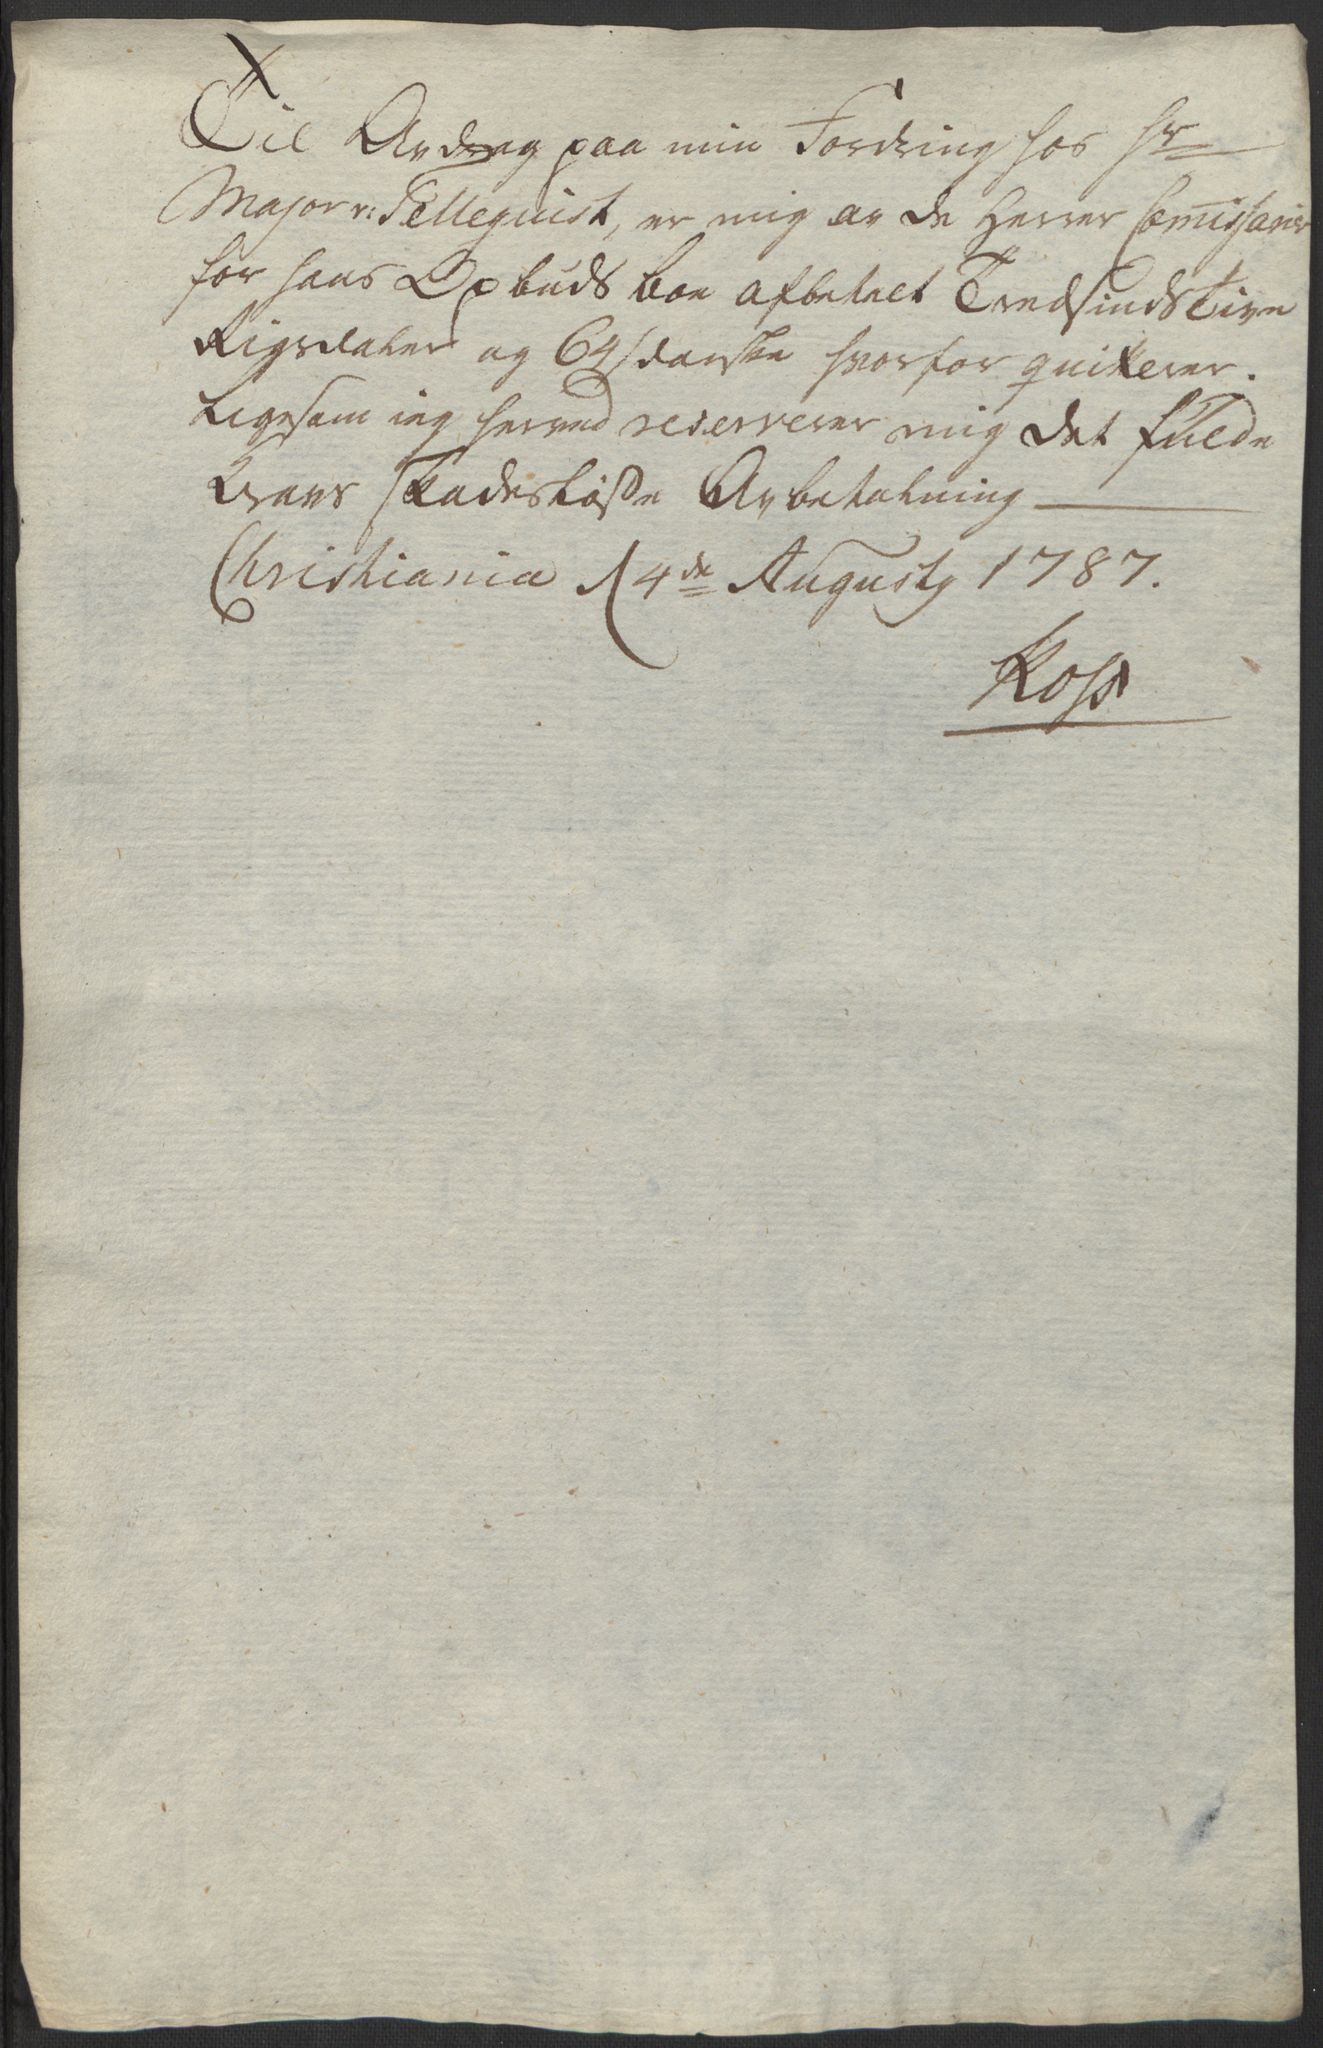 Til Avdrag paa min Fordring hos Hr
Major v: Tellequist, er mig av de Herrer Comissarier
for hans Opbuds boe afbetalt Tredsindstive
Rigsdaler og 64 s danske hvorfor quiterer.
Ligesom ieg herved reserverer mig det fulde
Kravs skadesløsse Avbetalning
Christiania d 4de Augusty 1787.
Ross